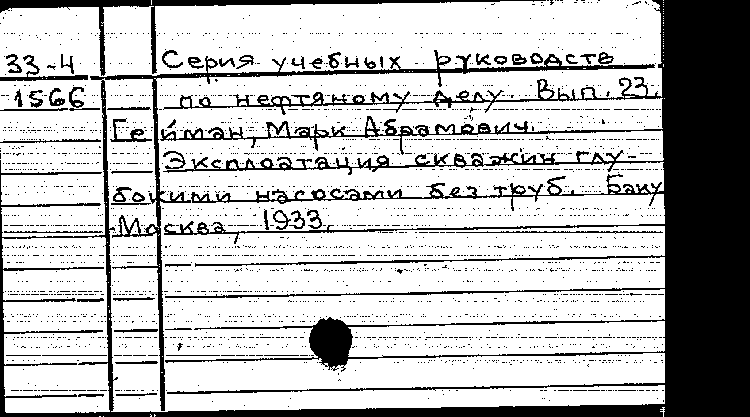 33-4 Серия учебных руководств
1566 по нефтяному делу. Вып. 23.
Гейман, Марк Абрамович.
Эксплоатация скважин глу-
бокими насосами без труб. Баку
-Москва, 1933.